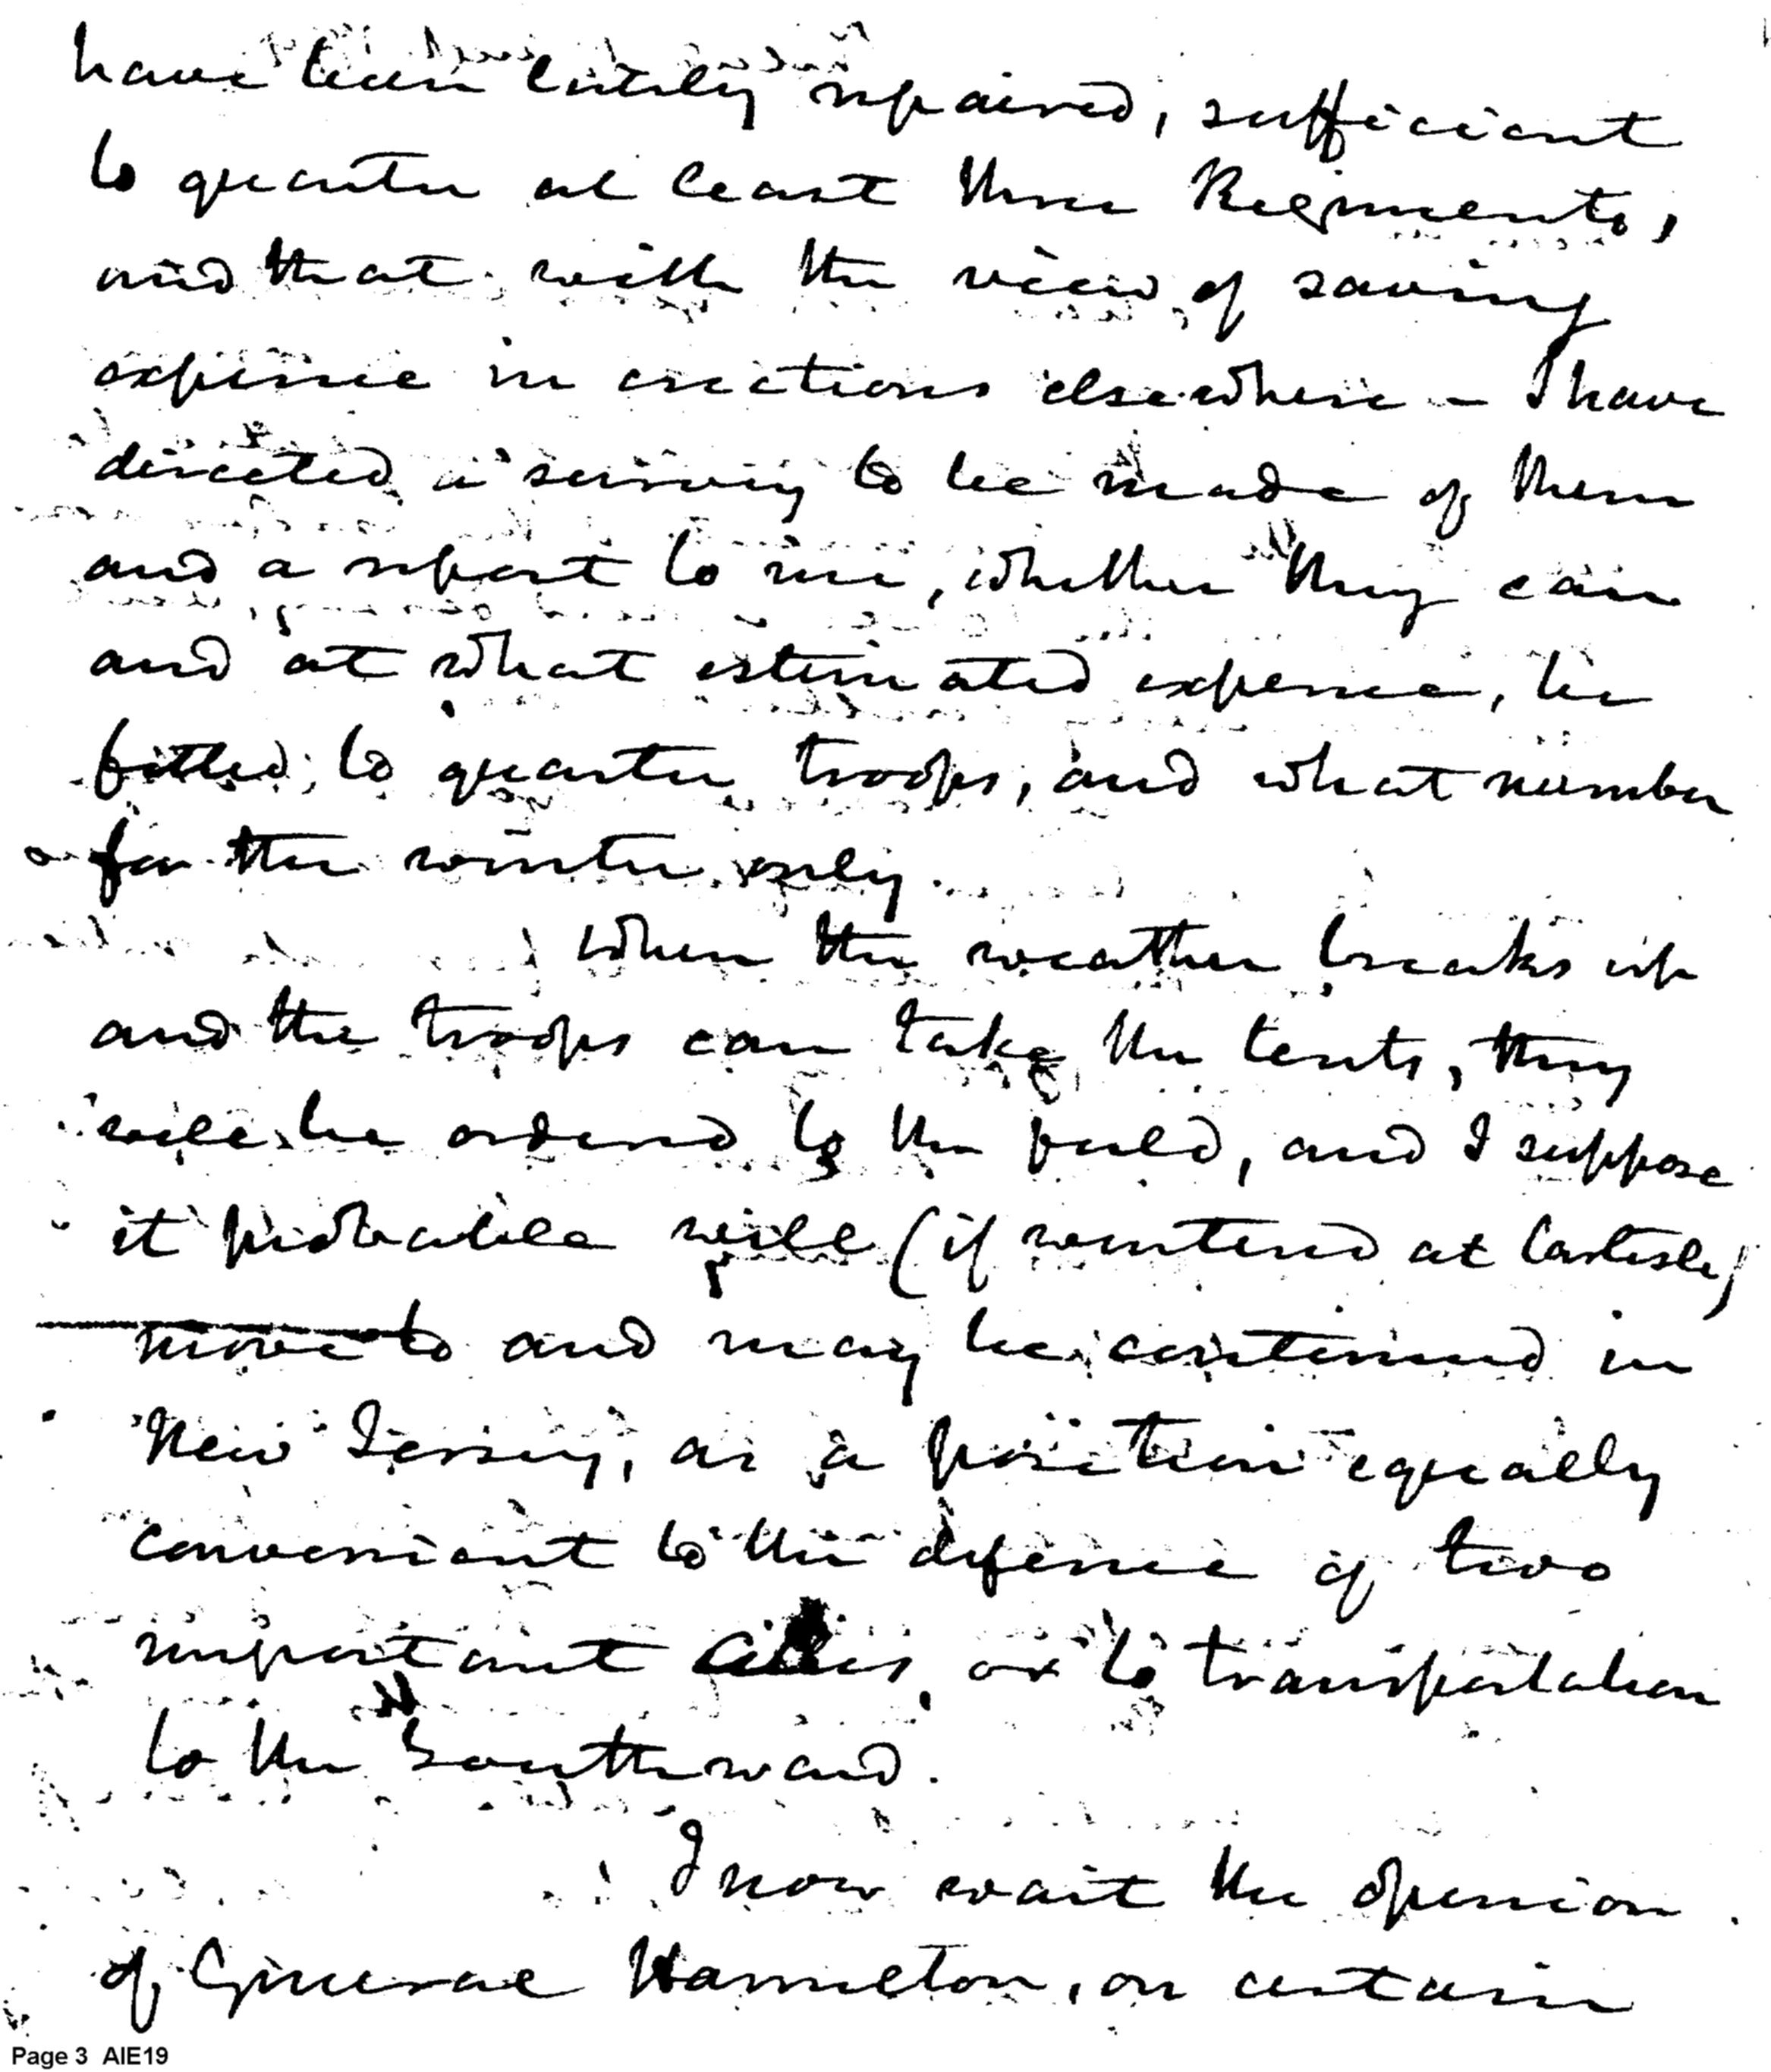 have been lately repaired, sufficient
to quarter at least three Regiments,
and that with the view of saving
expence in erections elsewhere – I have
directed a survey to be made of them
and a report to me, whether they can
and at what estimated expence, be
fitted, to quarter troops, and what number
for the winter only.
When the weather breaks up
and the troops can take the tents, they
will be ordered to the field, and I suppose
it probable will (if wintered at Carlisle)
move to and may be continued in
New Jersey, as a position equally
convenient to the defence of two
important cities, or to transportation
to the Southward.
I now wait the opinion
of General Hamilton, on certain
Page 3 AIE19